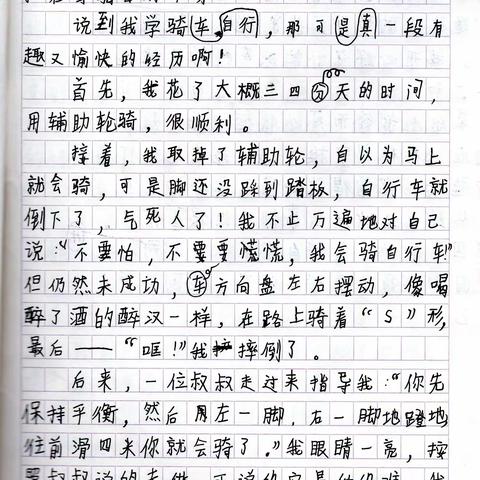 说到我学骑车自行，那可是真一段有
趣又愉快的经历啊！
首先，我花了大概三四天的时间，
用辅助轮骑，很顺利。
接着，我取掉了辅助轮，自以为马上
就会骑，可是脚还没踩到踏板，自行车就
倒下了，气死人了！我不止万遍地对自己
说：“不要怕，不要要慌慌，我会骑自行车！”
但仍然未成功，车方向盘左右摆动，像喝
醉了酒的醉汉一样，在路上骑着“S”形，
最后——“哐！”我摔倒了。
后来，一位叔叔走过来指导我：“你先
保持平衡，然后用左一脚，右一脚地蹬地
往前滑四米你就会骑了。”我眼睛一亮，按
照叔叔说的去做